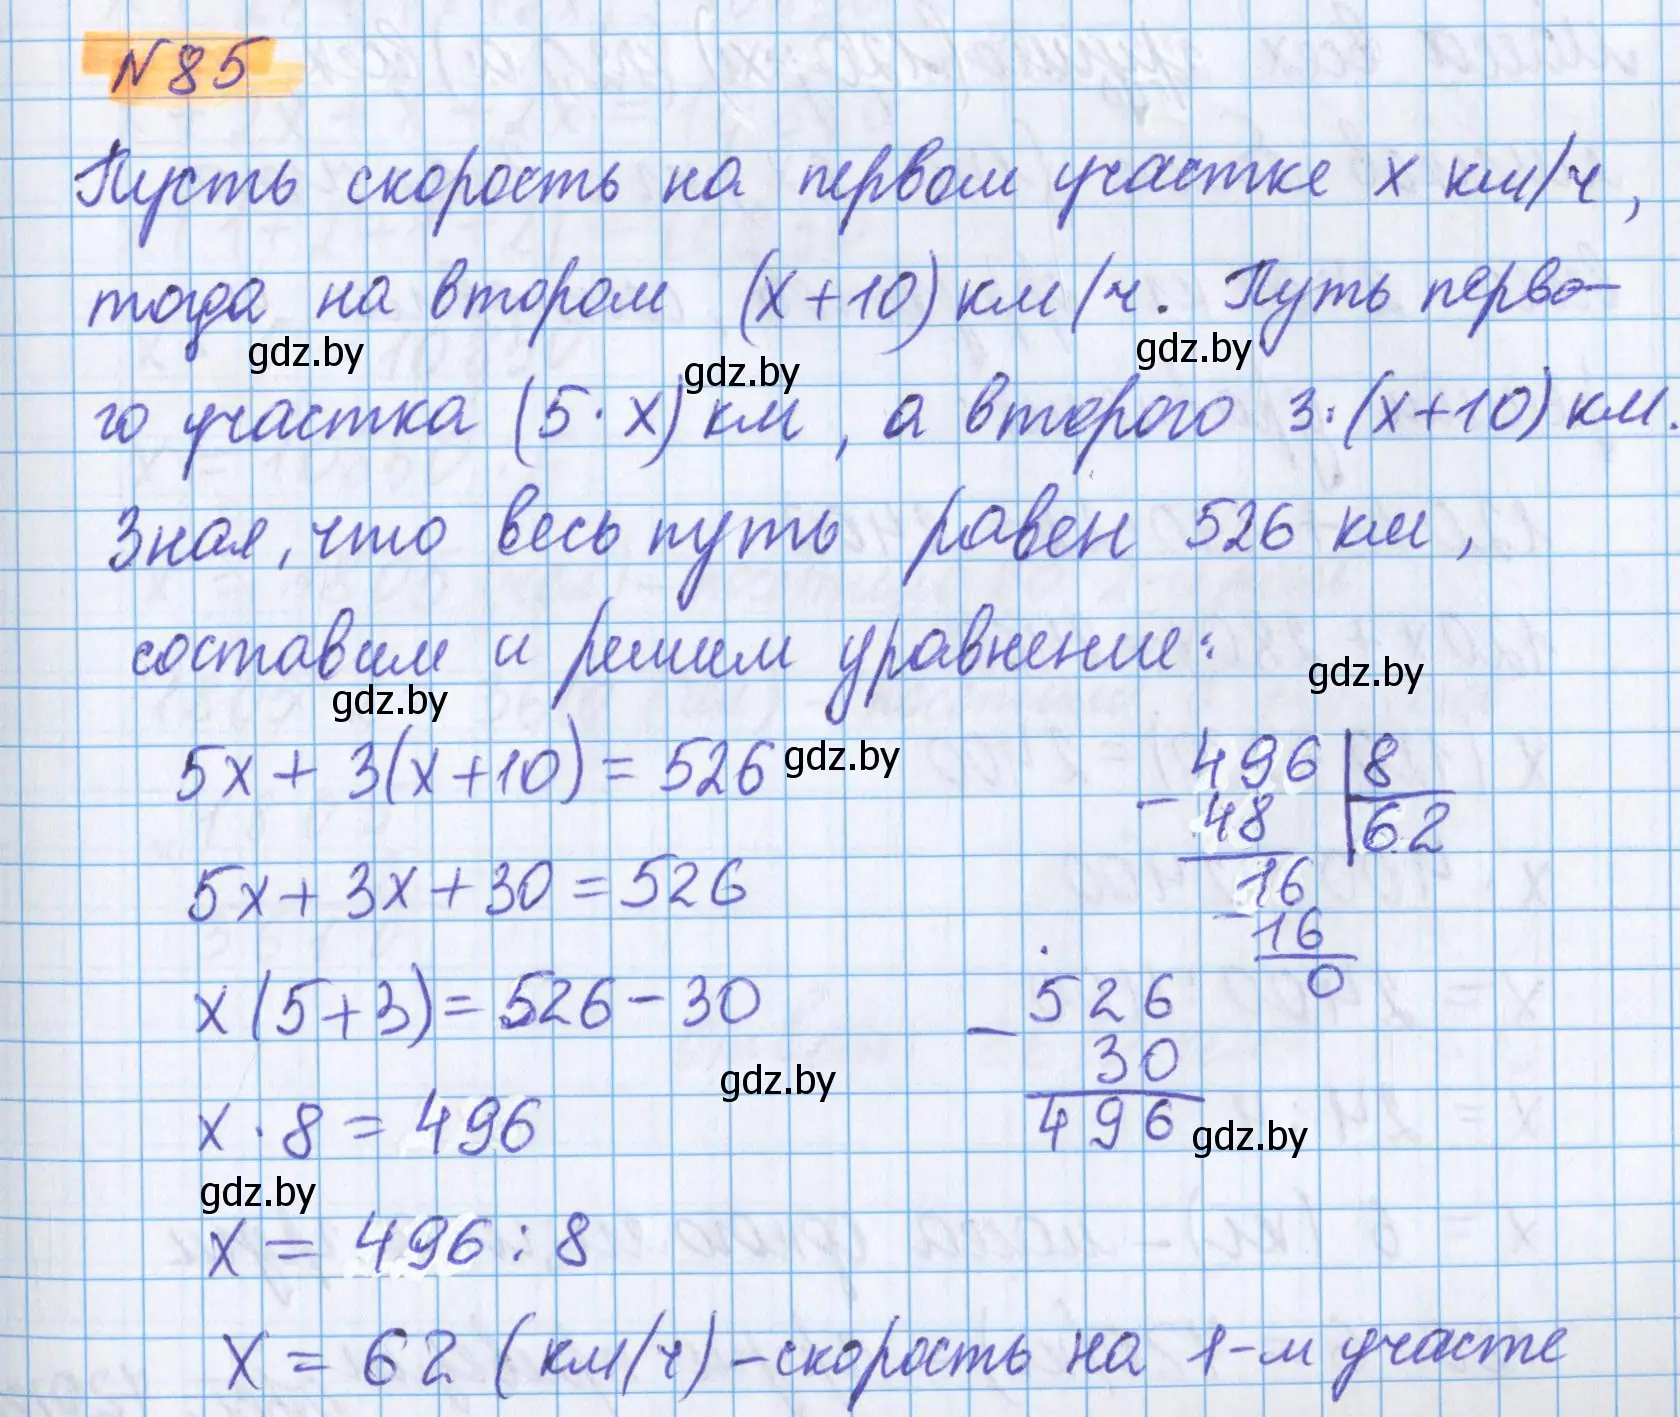 N 85
Пусть скорость на первом участке x км/ч,
тогда на втором (x+10) км/ч. Путь перво-
gdz.by gdz.by gdz.by
го участка (5·x) км, а второго 3:(x+10) км.
Зная, что весь путь равен 526 км,
составим и решим уравнение:
gdz.by gdz.by
5x+3(x+10)=526 gdz.by
5x+3x+30=526
x(5+3)=526-30
gdz.by
x·8=496
gdz.by
x=496:8
x=62 (км/ч)-скорость на 1-м участе
496 | 8
- 48 | 62
16
- 16
0
526
- 30
496 gdz.by